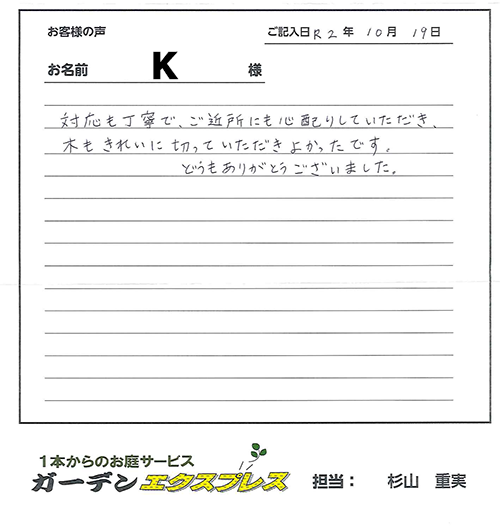 お客様の声
ご記入日 R2年 10月 19日
お名前 K 様
対応も丁寧で、ご近所にも心配りしていただき、
木もきれいに切っていただきよかったです。
どうもありがとうございました。
1本からのお庭サービス
ガーデンエクスプレス 担当： 杉山 重実